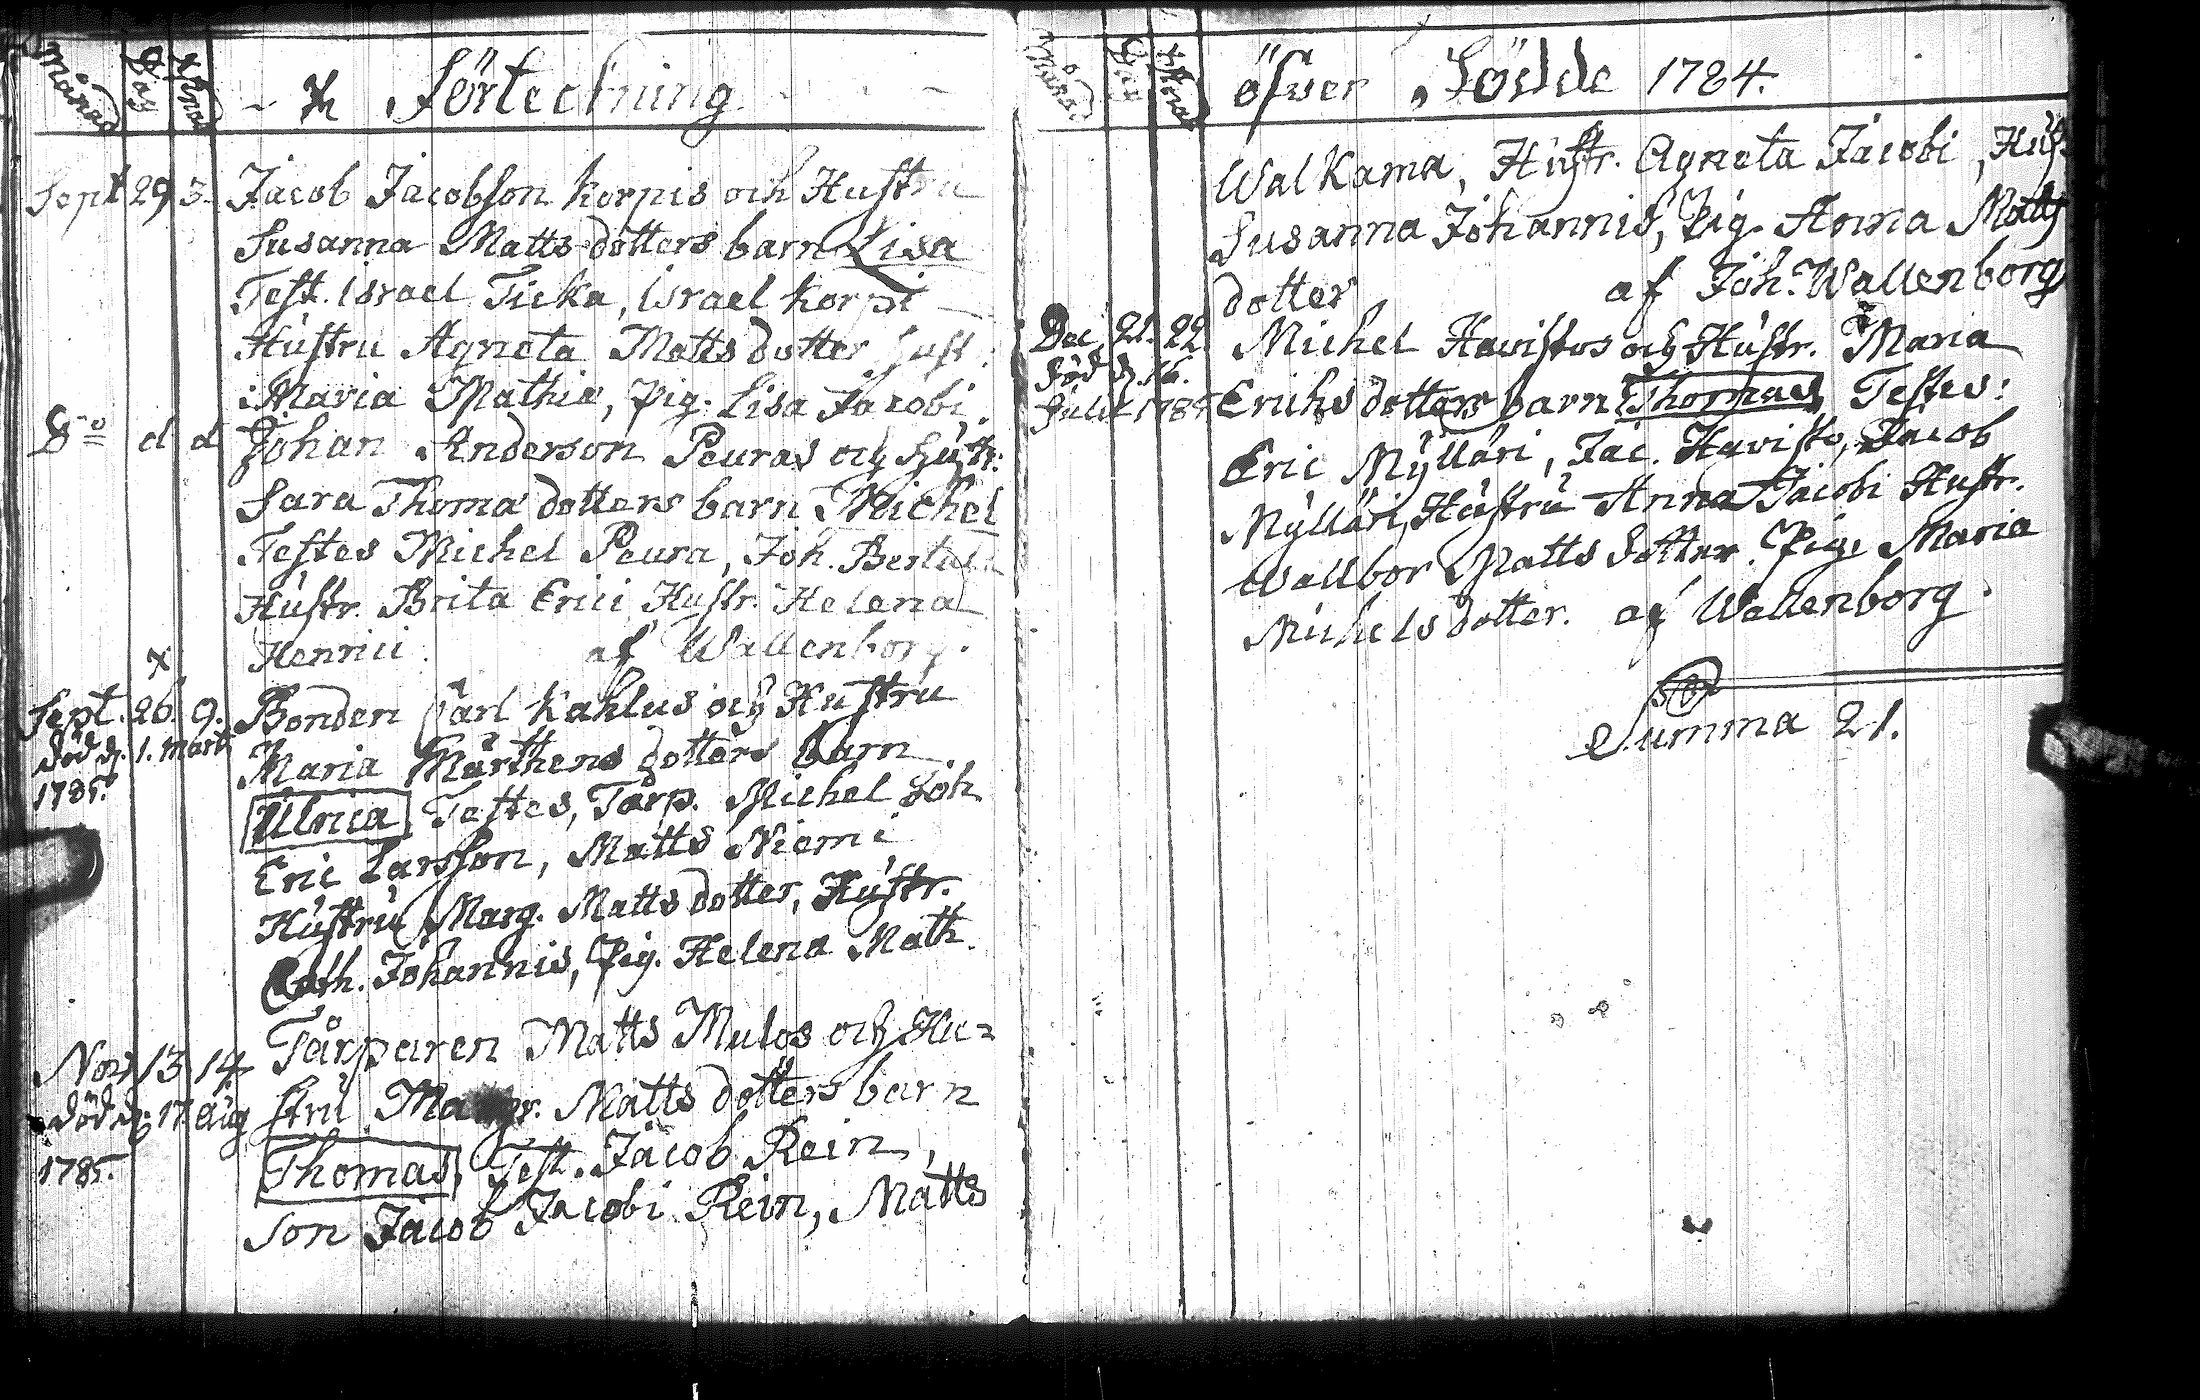 Månad Dag Χstnad ~ Förteckning
Sept 29 3. Jacob Jacobsson Korpis och Hustru
Susanna Matts dotters barn Lisa
Test. Israel Ticka, Israel Korpi
Hustru Agneta Matts dotter Hust.
Maria Mathiæ, Pig. Lisa Jacobi.
Do d d Johan Anderson Peuras och Hustr.
Sara Thomæ dotters barn Michel
Testes Michel Peura, Joh. Bertula
Hustr. Brita Erici Hustr. Helena
Henrici. af Wallenborg.
x
Sept. 26. 9. Bonden Carl Kahlus och Hustru
död d. 1. Marti Maria Mårthens dotters barn
1785. Ulrica Testes, Tårp. Michel Joh
Eric Larsson, Matts Niemi
Hustru Marg. Matts dotter, Hustr.
Cath. Johannis, Pig. Helena Math.
Nov. 13 14 Tårparen Matts Mulos och Hu=
död d. 17. Aug stru Margr. Matts dotters barn
1785. Thomas, Test. Jacob Rein,
son Jacob Jacobi Rein, Matts
Månad Dag Χstnad öfver Födde 1784.
Walkama, Hustr. Agneta Jacobi, Hust.
Susanna Johannis, Pig. Anna Matts
dotter af Joh. Wallenborg
Dec. 21. 22. Michel Havistos och Hustr. Maria
död d. 16. Erichs dotters barn Thomas Testes:
Julii 1785 Eric Mÿlläri, Jac. Havisto, Jacob
Mÿlläri, Hustru Anna Jacobi Hustr.
Wallbor Matts dotter. Pig. Maria
Michels dotter. af Wallenborg.
Summa 21.